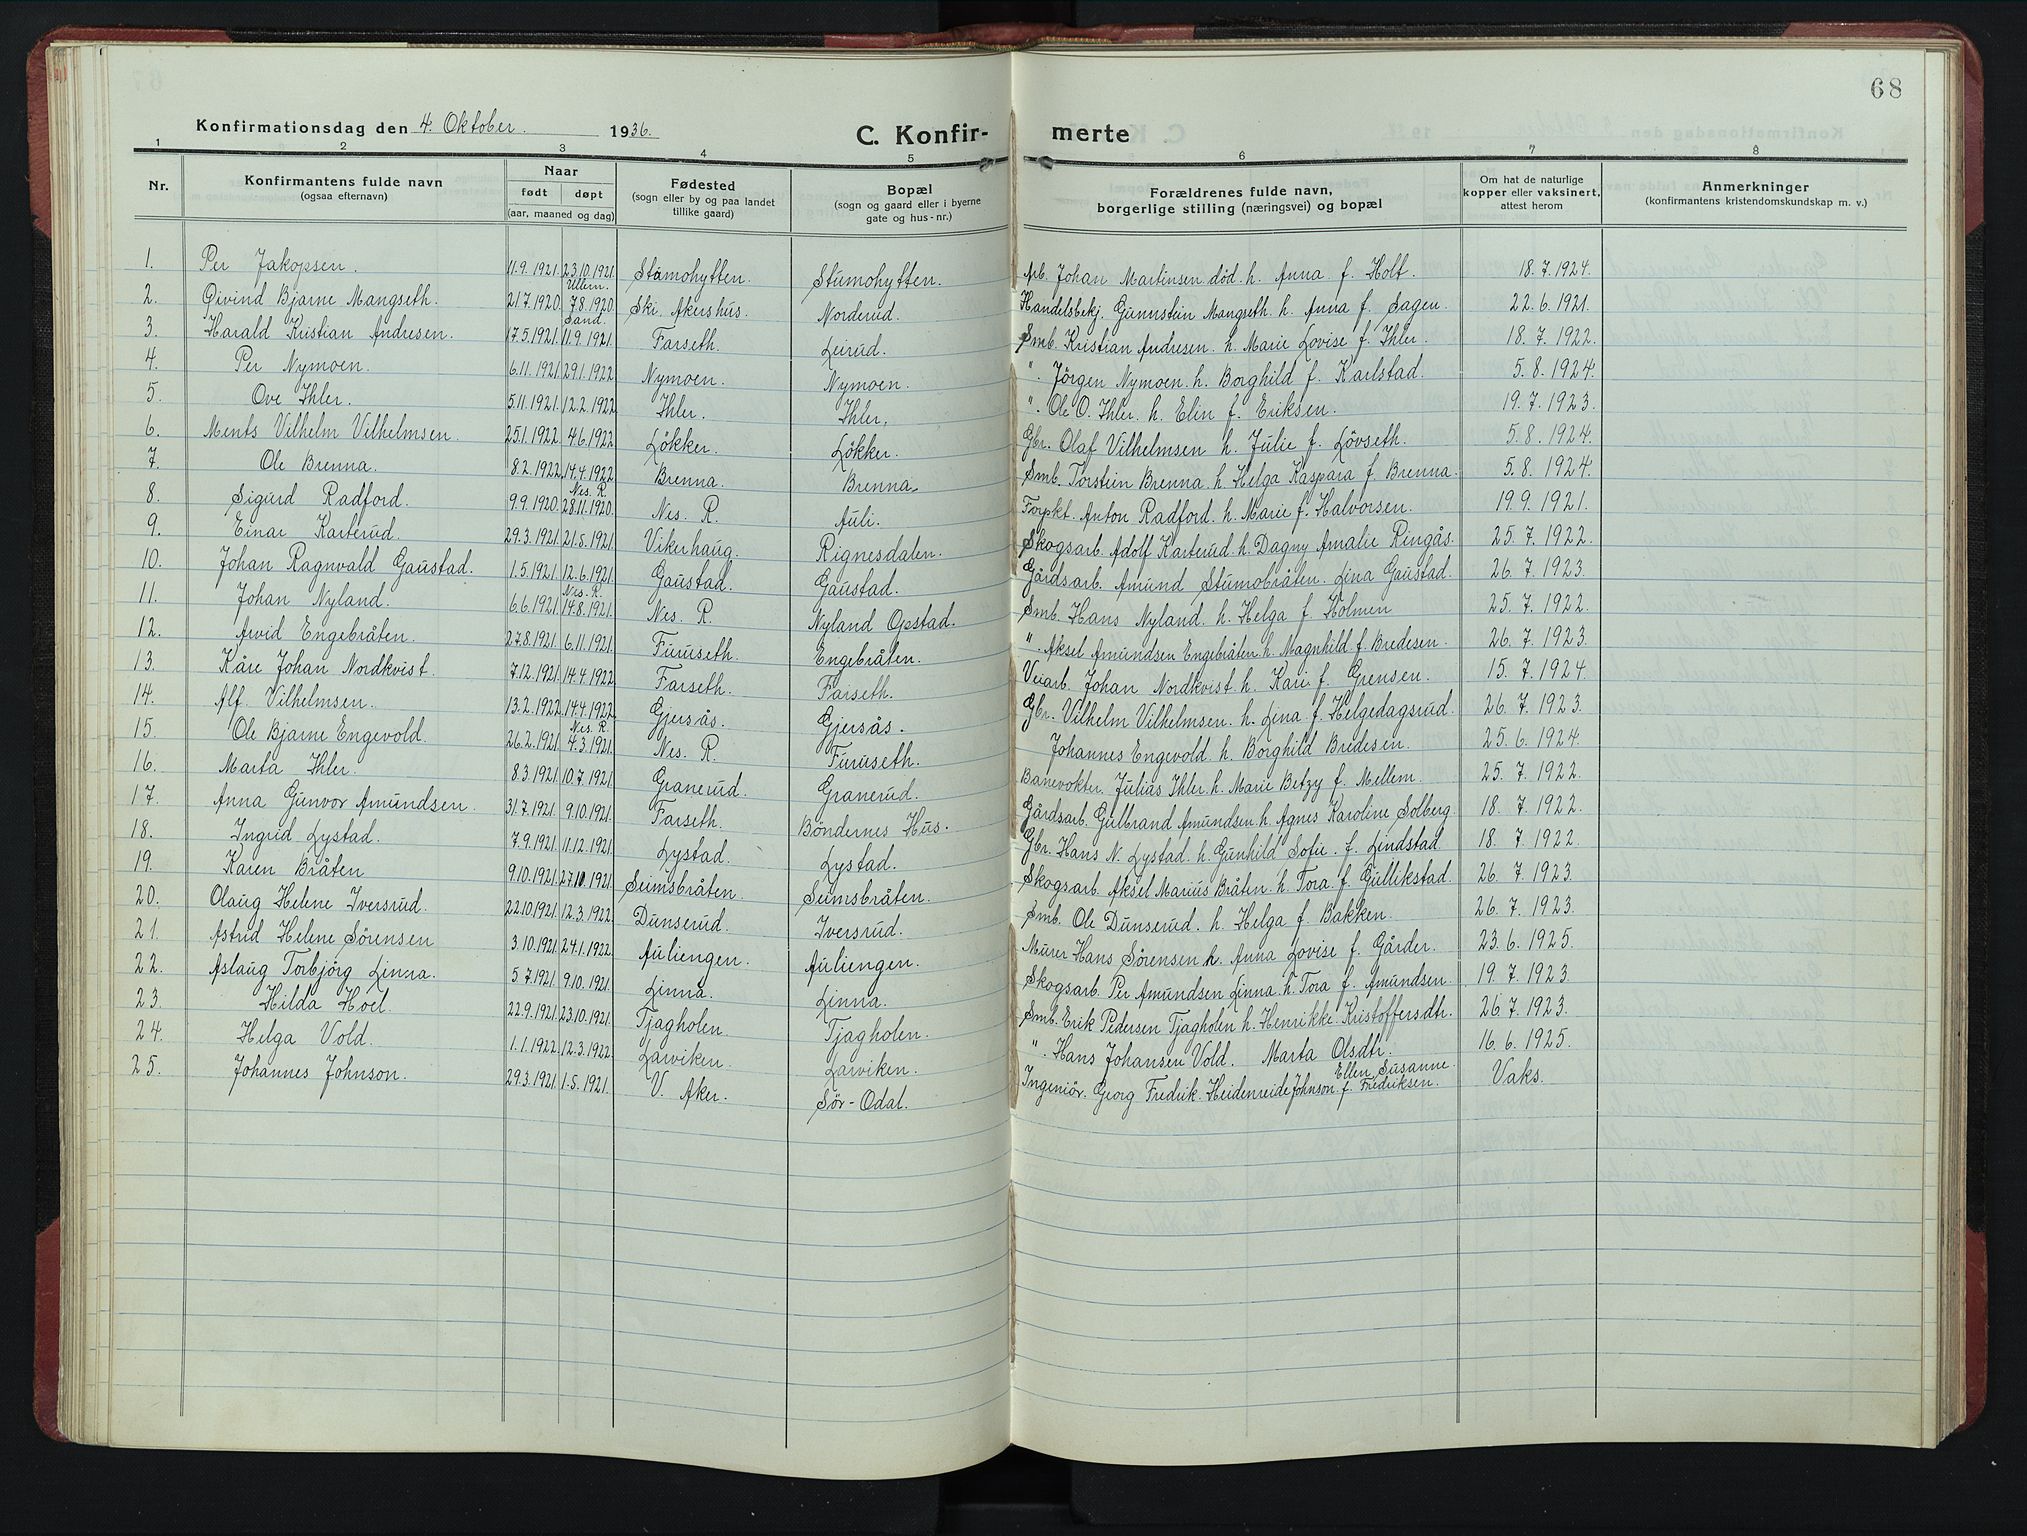 68
Konfirmationsdag den 4. Oktober 1936.
C. Konfir- merte
1 2 3 4 5 6 7 8
Nr.
Konfirmantens fulde navn
(ogsaa efternavn)
Naar
født døpt
(aar, maaned og dag)
Fødested
(sogn eller by og paa landet
tillike gaard)
Bopæl
(sogn og gaard eller i byerne
gate og hus-nr.)
Forældrenes fulde navn,
borgerlige stilling (næringsvei) og bopæl
Om hat de naturlige
kopper eller vaksinert,
attest herom
Anmerkninger
(konfirmantens kristendomskundskap m. v.)
1. Per Jakopsen. 11.9.1921. 23.10.1921. Stümohytten. Stümohytten. Arb. Johan Martinsen død. h. Anna f. Holt. 18.7.1924.
2. Øivind Bjarne Mangseth. 21.7.1920. Ullern. 7.8.1920. Ski. Akershus. Norderud. Handelsbetj. Gunnstein Mangseth. h. Anna f. Sagen. 22.6.1921.
3. Harald Kristian Andresen. 17.5.1921. Sand. 11.9.1921. Farseth. Leirud. Smb. Kristian Andresen. h. Marie Lovise f. Ihler. 18.7.1922.
4. Per Nymoen. 6.11.1921. 29.1.1922. Nymoen. Nymoen. ". Jörgen Nymoen. h. Borghild f. Karlstad. 5.8.1924.
5. Ove Ihler. 5.11.1921. 12.2.1922. Ihler. Ihler. ". Ole O. Ihler. h. Elin f. Eriksen. 19.7.1923.
6. Ments Vilhelm Vilhelmsen. 25.1.1922. 4.6.1922. Løkker. Løkker. Gbr. Olaf Vilhelmsen h. Julie f. Lövseth. 5.8.1924.
7. Ole Brenna. 8.2.1922. 14.4.1922. Brenna. Brenna. Smb. Torstein Brenna. h. Helga Kaspara f. Brenna. 5.8.1924.
8. Sigurd Radford. 9.9.1920. Nes. R. 28.11.1920. Nes. R. Auli. Forpkt. Anton Radford. h. Marie f. Halvorsen. 19.9.1921.
9. Einar Karterud. 29.3.1921. 21.5.1921. Vikerhaug. Rignesdalen. Skogsarb. Adolf Karterud. h. Dagny Amalie Ringås. 25.7.1922.
10. Johan Ragnvald Gaustad. 1.5.1921. 12.6.1921. Gaustad. Gaustad. Gårdsarb. Amund Stumobråten. Lina Gaustad. 26.7.1923.
11. Johan Nyland. 6.6.1921. Nes. R. 14.8.1921. Nes. R. Nyland Opstad. Smb. Hans Nyland. h. Helga f. Holmen 25.7.1922.
12. Arvid Engebråten. 27.8.1921. 6.11.1921. Furuseth. Engebråten. ". Aksel Amundsen Engebråten h. Magnhild f. Bredesen. 26.7.1923.
13. Kåre Johan Nordkvist. 7.12.1921. 14.4.1922. Farseth. Farseth. Veiarb. Johan Nordkvist. h. Kari f. Grensen. 15.7.1924.
14. Alf Vilhelmsen. 13.2.1922. 14.4.1922. Gjersås. Gjersås. Gbr. Vilhelm Vilhelmsen. h. Lina f. Helgedagsrud. 26.7.1923.
15. Ole Bjarne Engevold. 26.2.1921. Nes. R. 4.3.1921. Nes. R. Furuseth. Johannes Engevold. h. Borghild Bredesen. 25.6.1924.
16. Marta Ihler. 8.3.1921. 10.7.1921. Granerud. Granerud. Banevokter. Julius Ihler. h. Marie Betzy f. Mellem. 25.7.1922.
17. Anna Gunvor Amundsen. 31.7.1921. 9.10.1921. Farseth. Böndernes Hus. Gårdsarb. Gulbrand Amundsen. h. Agnes Karoline Solberg. 18.7.1922.
18. Ingrid Lystad. 7.9.1921. 11.12.1921. Lystad. Lystad. Gbr. Hans N. Lystad. h. Gunhild Sofie. f. Lindstad 18.7.1922
19. Karen Bråten 9.10.1921. 27.10.1921. Seimsbråten. Seimsbråten. Skogsarb. Aksel Marius Bråten. h. Tora f. Gullikstad. 26.7.1923
20. Olaug Helene Iversrud. 22.10.1921. 12.3.1922. Dunserud. Iversrud. Smb. Ole Dunserud. h. Helga f. Bakken. 26.7.1923.
21. Astrid Helene Sörensen 3.10.1921. 24.1.1922. Auliengen. Auliengen. Murer Hans Sörensen h. Anna Lovise f. Gårder. 23.6.1925.
22. Aslaug Torbjörg Linna. 5.7.1921. 9.10.1921. Linna. Linna. Skogsarb. Per Amundsen Linna. h. Tora f. Amundsen. 19.7.1923.
23 Hilda Hoel. 22.9.1921. 23.10.1921. Tjagholen. Tjagholen. Smb. Erik Pedersen Tjagholen h. Henrikke Kristoffersdtr. 26.7.1923.
24. Helga Vold. 1.1.1922. 12.3.1922. Larviken. Larviken. ". Hans Johansen Vold. Marta Olsdtr. 16.6.1925.
25. Johannes Johnson. 29.3.1921. 1.5.1921. V. Aker. Sör-Odal. Ingeniör. Georg Fredrik. Heidenreide Johnson f. Ellen Susanne Fredriksen. Vaks.